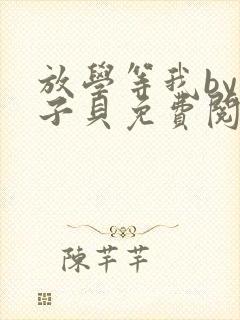 放學等我by
子貝免費閱
陳芊芊